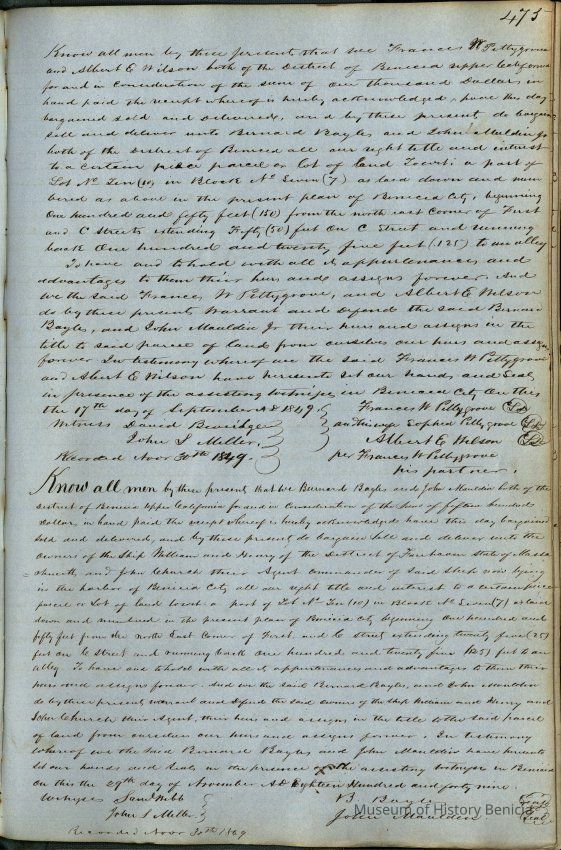 475
Know all men by these presents that we Frances W Pettygrove
and Albert E Wilson both of the District of Benicia upper California
for and in Consideration of the sum of One thousand Dollars in
hand paid the receipt whereof is hereby acknowledged, have this day
bargained sold and delivered, and by these present, do bargain
sell and deliver unto Bernard Bayles and John Mauldin Jr
both of the District of Benicia all our right title and interest
to a certain piece parcel or Lot of land Towit: a part of
Lot No Ten (10) in Block No Seven (7) as laid down and num
bered as above in the present plan of Benicia City, beginning
One hundred and fifty feet (150) from the north east Corner of First
and C Streets extending Fifty (50) feet on C Street and running
back One hundred and twenty five feet (125) to an alley
To have and to hold with all it appurtenances and
advantages to them their heirs and assigns forever. And
we the said Frances W Pettygrove, and Albert E Wilson
do by these present, Warrant and Defend the said Bernard
Bayles, and John Mauldin Jr their heirs and assigns in the
title to said parcel of land from ourselves our heirs and assigns
forever In testimony whereof we the said Frances W Pettygrove
and Albert E Wilson have hereunto set our hands and Seals
in presence of the assisting witnesses in Benicia City On this
the 17th day of September AD 1849.
Frances W Pettygrove
Witness David
Sophia Pettygrove
John S Miller,
Albert E Wilson
Recorded Novr 30th 1849.
per Frances W Pettygrove
his partner.
Know all men by these present, that we Bernard Bayles and John Mauldin both of the
District of Benicia Upper California for and in Consideration of the Sum of fifteen hundred
Dollars in hand paid the receipt whereof is hereby acknowledged have this day bargained
Sold and delivered, and by these present, do bargain Sell and deliver unto the
Owners of the Ship William and Henry of the District of Fairhaven State of Massa
chusetts and John Church their Agent Commander of Said Ship now lying
in the harbor of Benicia City all our right title and interest to a certain piece
parcel or Lot of land towit: a part of Lot No Ten (10) in Block No Seven (7) as laid
down and numbered in the present plan of Benicia City beginning One hundred and
fifty feet from the north East Corner of First and C Street extending twenty five (25)
feet on C Street and running back One hundred and twenty five (125) feet to an
alley To have and to hold with all it appurtenances and advantages to them their
heirs and assigns forever. And we the Said Bernard Bayles, and John Mauldin
do by these present, warrant and Defend the said owners of the Ship William and Henry and
John Church their Agent, their heirs and assigns in the title to the said parcel
of land from ourselves our heirs and assigns forever, In testimony
whereof we the Said Bernard Bayles and John Mauldin have hereunto
Set our hands and Seals in the presence of the assisting witnesses in Benicia
on this the 29th day of November AD Eighteen Hundred and forty nine.
Witnesses Saml
B Bayles
Seal
John S Miller
John Mauldin
Seal
Recorded Novr 30th 1849
Museum of History Benicia